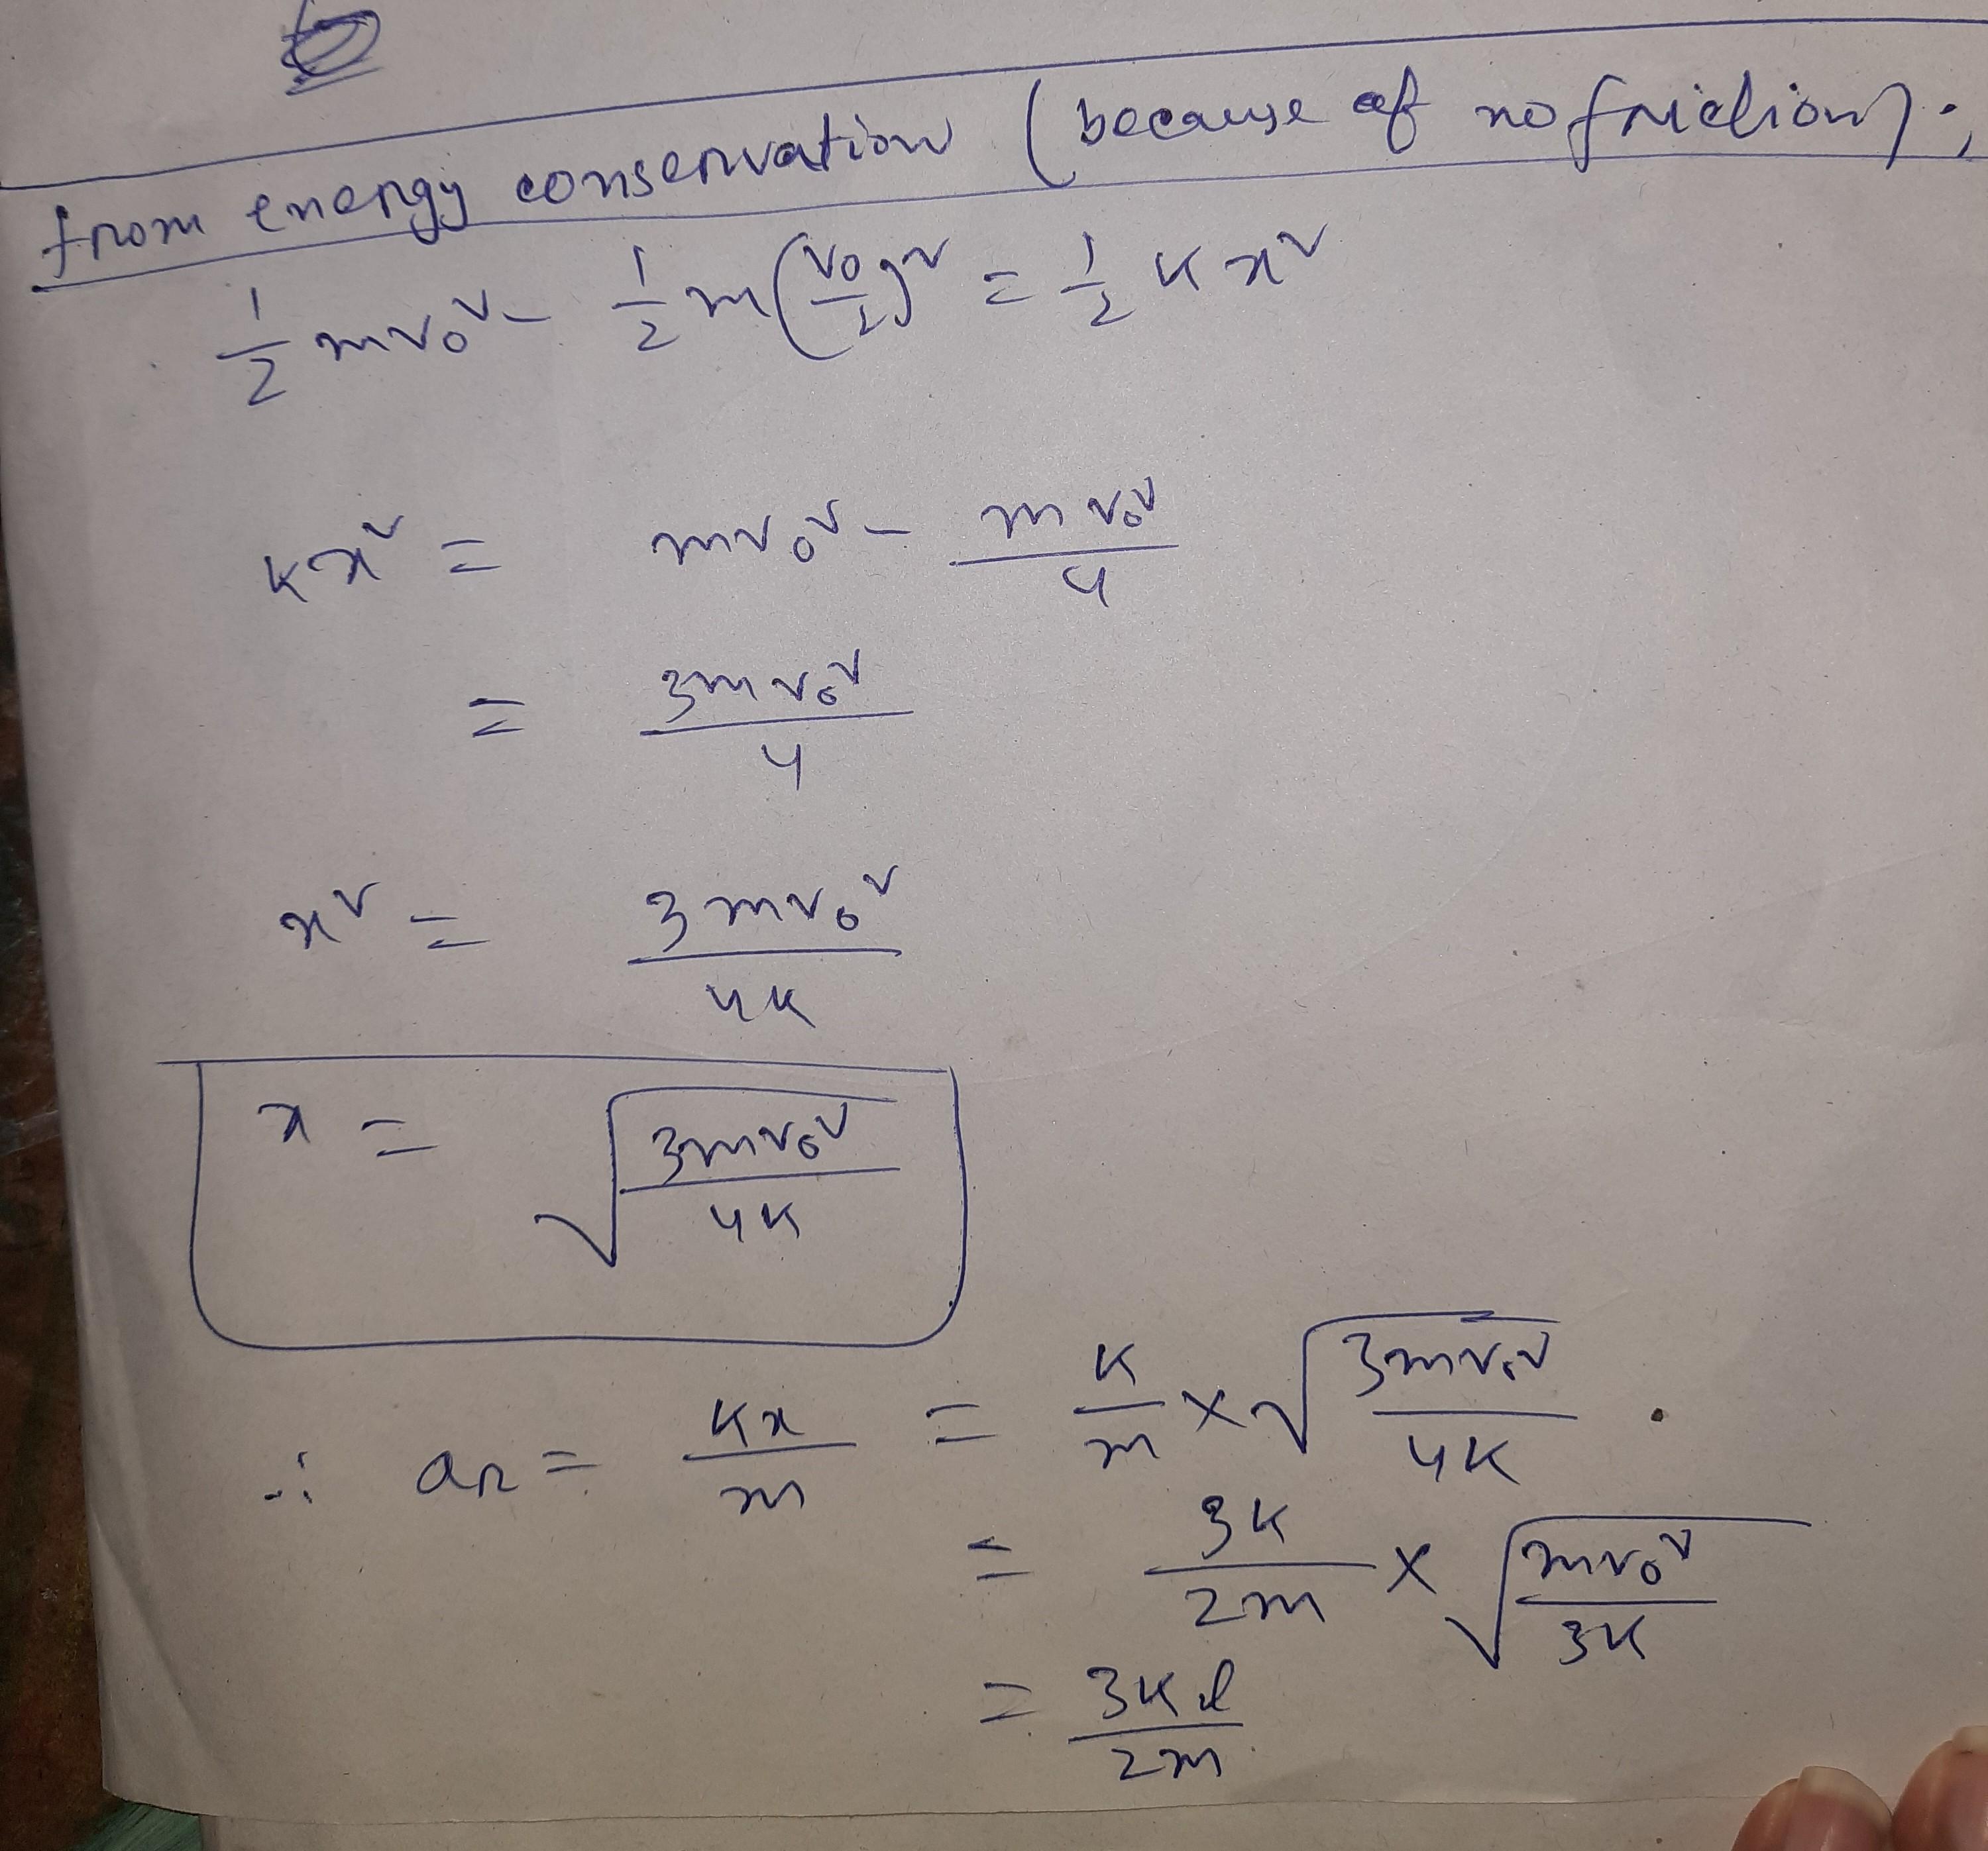 from energy conservation (because of no friction).,
1/2 mv₀² - 1/2 m(v₀/2)² = 1/2 Kx²
Kx² = mv₀² - mv₀²/4
= 3mv₀²/4
x² = 3mv₀²/4K
x = √(3mv₀²/4K)
∴ aₙ = Kx/m = K/m × √(3mv₀²/4K) .
= 3K/2m × √(mv₀²/3K)
= 3Kl/2m